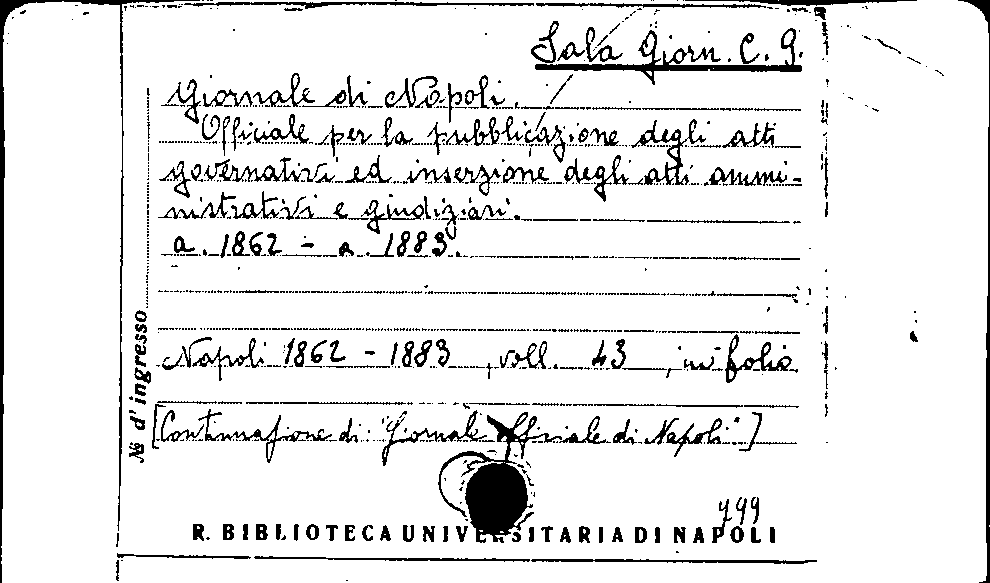 Sala Giorn. C. G.
Giornale di Napoli.
Officiale per la pubblicazione degli atti
governativi ed inserzione degli atti ammi-
nistrativi e giudiziari.
a. 1862 - a. 1883.
Napoli 1862 - 1883, voll. 43, in folio
[Continuazione di: "Giornale officiale di Napoli"]
799
R. BIBLIOTECA UNIVERSITARIA DI NAPOLI
№ d'ingresso